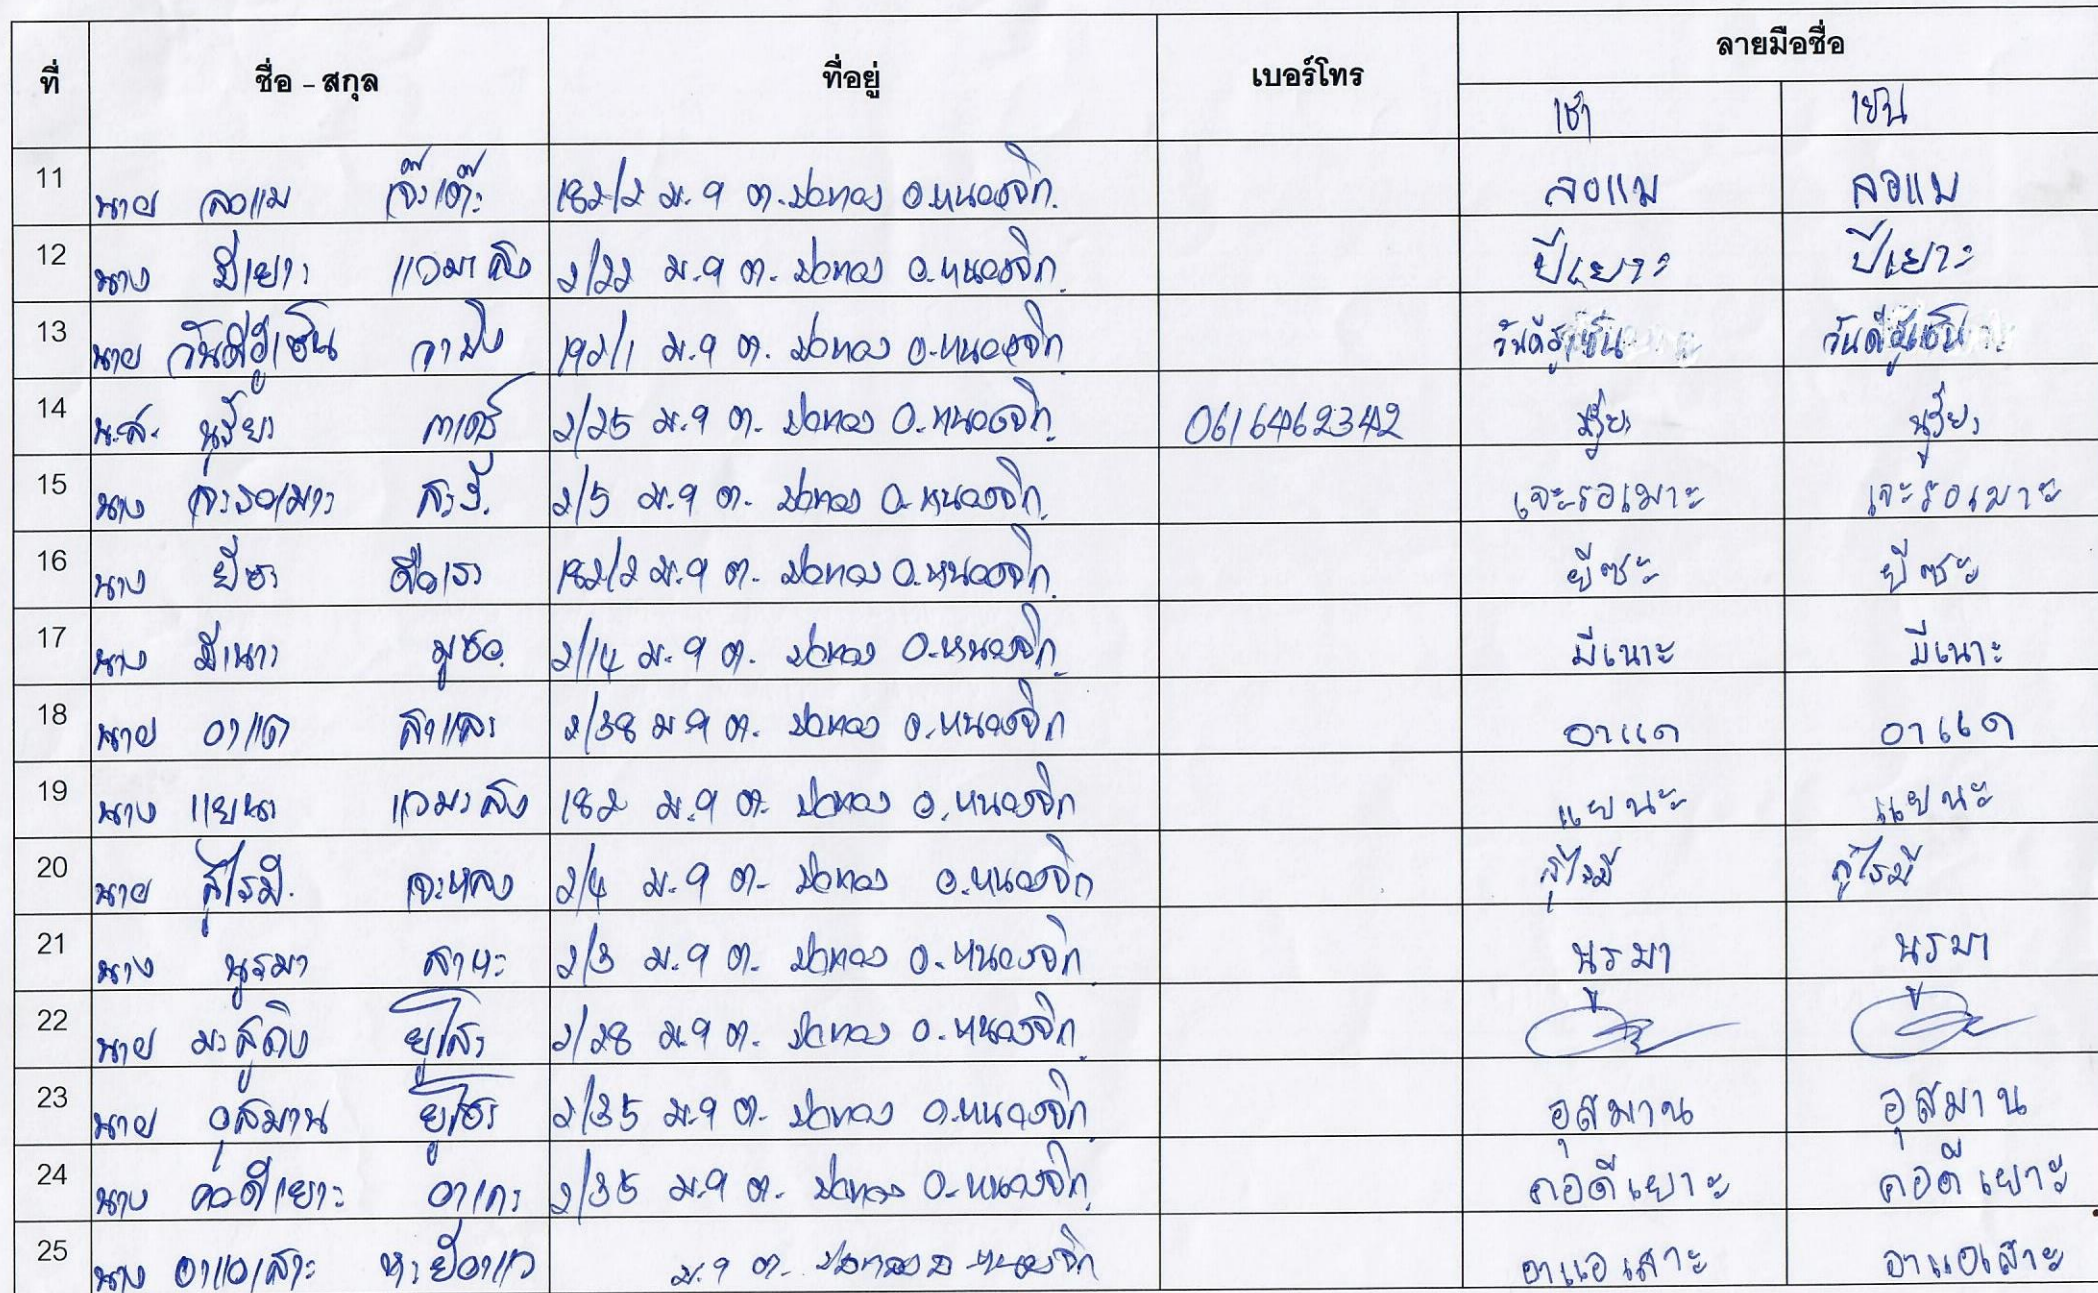 ที่ ชื่อ - สกุล ที่อยู่ เบอร์โทร ลายมือชื่อ
เช้า เย็น
11 นาย ลอแม เจ๊ะเต๊ะ 182/2 ม.9 ต.บ่อทอง อ.หนองจิก ลอแม ลอแม
12 นาง ปีเยาะ แวมะลิง 2/22 ม.9 ต.บ่อทอง อ.หนองจิก ปีเยาะ ปีเยาะ
13 นาย วันดีฮูเซ็น 192/1 ม.9 ต.บ่อทอง อ.หนองจิก วันดีฮูเซ็น วันดีฮูเซ็น
14 น.ส. นูรียะ กาเดร์ 2/25 ม.9 ต.บ่อทอง อ.หนองจิก 0616462342 นูรียะ นูรียะ
15 นาง เจะรอเมาะ 2/5 ม.9 ต.บ่อทอง อ.หนองจิก เจะรอเมาะ เจะรอเมาะ
16 นาง ยีซะ ดือเระ 182/2 ม.9 ต.บ่อทอง อ.หนองจิก ยีซะ ยีซะ
17 นาง มีเนาะ มูซอ 2/14 ม.9 ต.บ่อทอง อ.หนองจิก มีเนาะ มีเนาะ
18 นาย อาแด สาและ 2/38 ม.9 ต.บ่อทอง อ.หนองจิก อาแด อาแด
19 นาง แยนะ แวมะลิง 182 ม.9 ต.บ่อทอง อ.หนองจิก แยนะ แยนะ
20 นาย สูไรมี เจะหลง 2/4 ม.9 ต.บ่อทอง อ.หนองจิก สูไรมี สูไรมี
21 นาง นูรมา สาหะ 2/3 ม.9 ต.บ่อทอง อ.หนองจิก นูรมา นูรมา
22 นาย มะสูดิง ยูโสะ 2/28 ม.9 ต.บ่อทอง อ.หนองจิก
23 นาย อุสมาน ยูโซะ 2/35 ม.9 ต.บ่อทอง อ.หนองจิก อุสมาน อุสมาน
24 นาง คอดีเยาะ อาแด 2/35 ม.9 ต.บ่อทอง อ.หนองจิก คอดีเยาะ คอดีเยาะ
25 นาง อาแอเสาะ หะยีอาแว ม.9 ต.บ่อทอง อ.หนองจิก อาแอเสาะ อาแอเสาะ